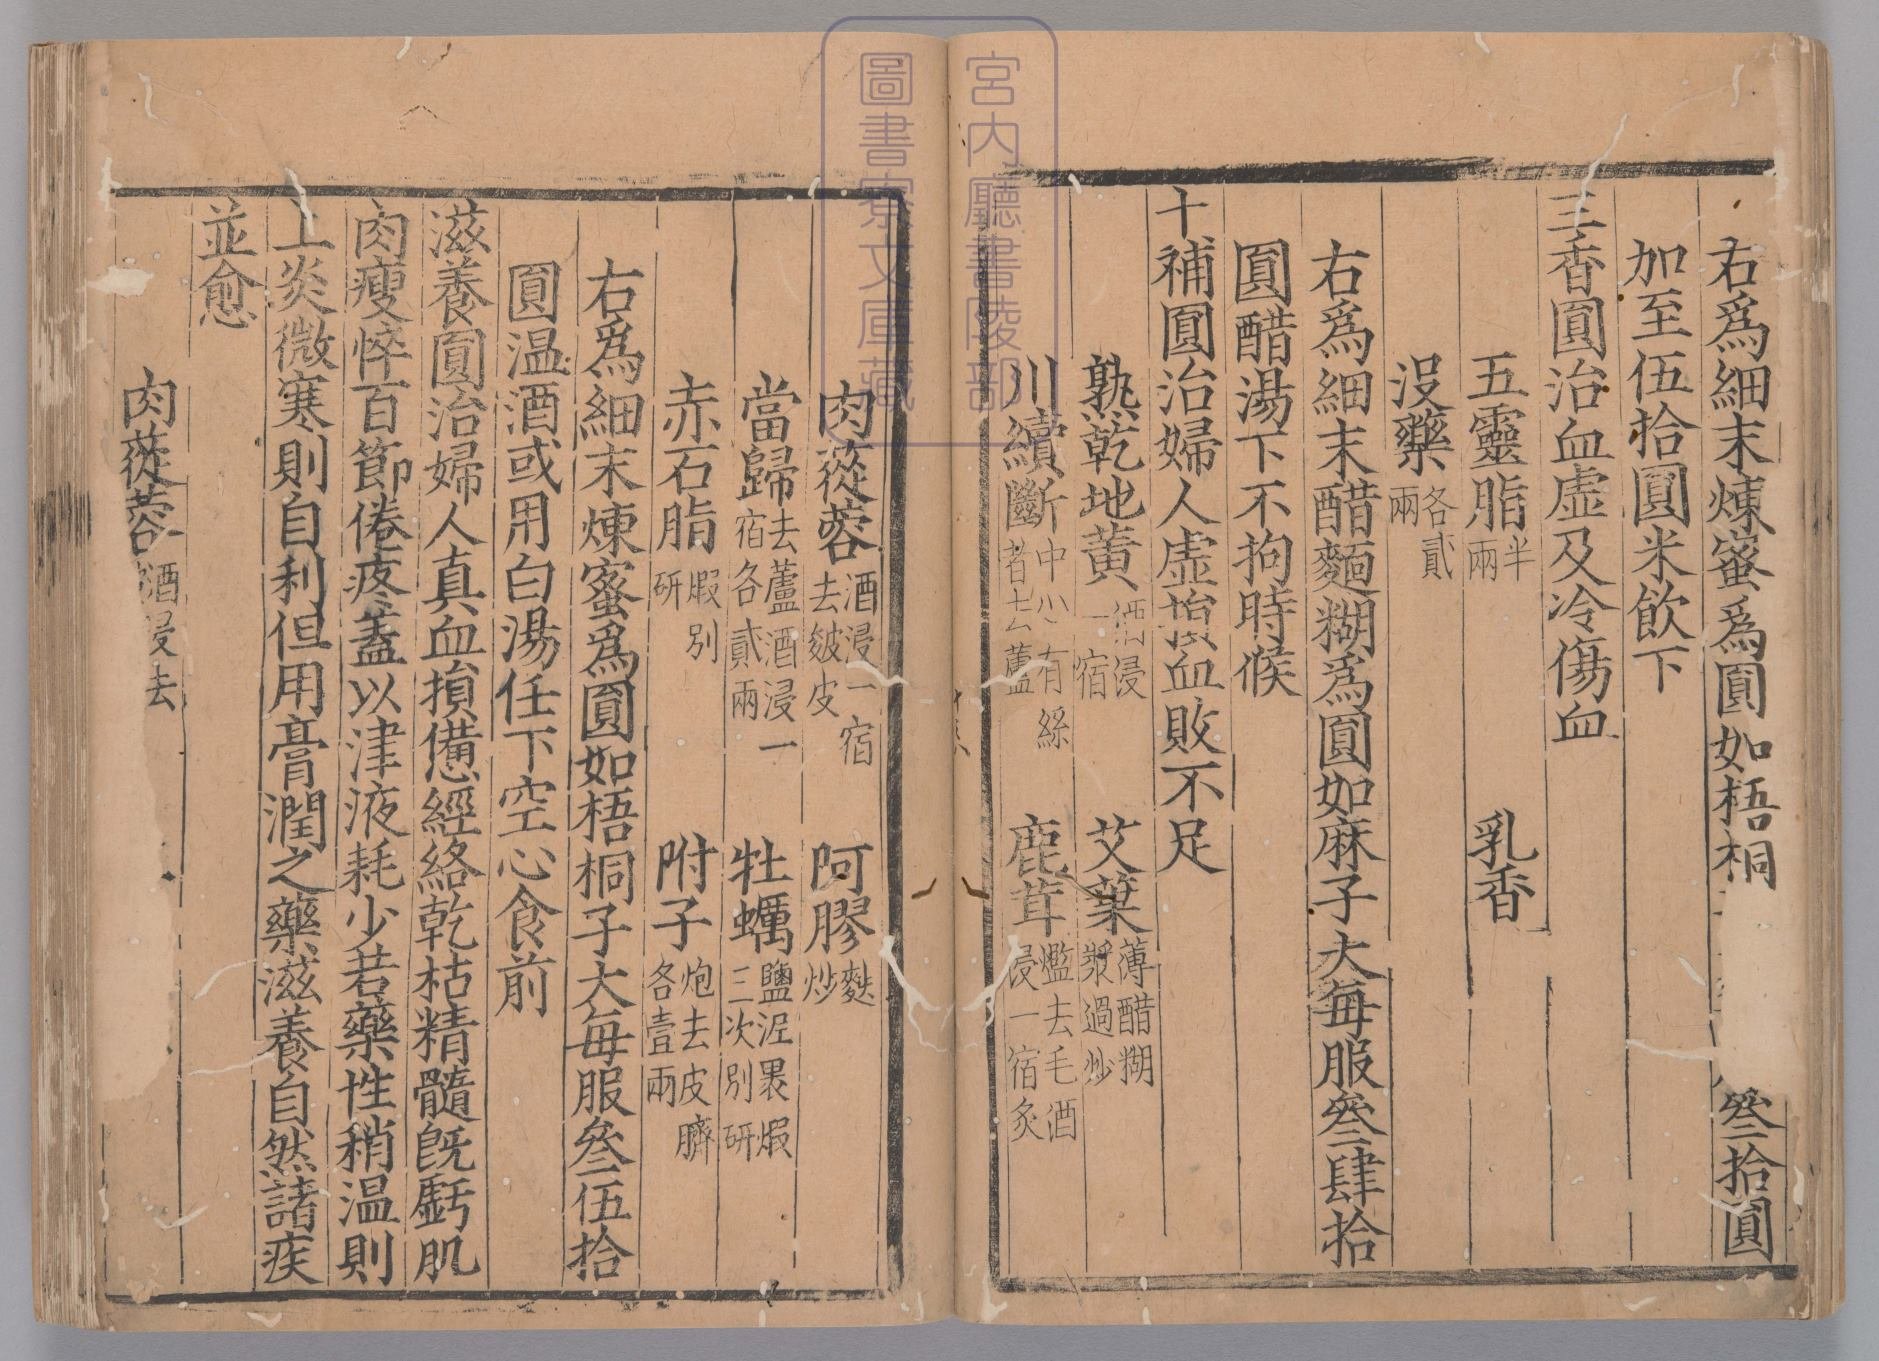 右爲細末煉蜜爲圓如梧桐
叄拾圓
加至伍拾圓米飲下
三香圓治血虛及冷傷血
五靈脂半兩 乳香
沒藥各貳兩
右爲細末醋麵糊爲圓如麻子大每服叄肆拾
圓醋湯下不拘時候
十補圓治婦人虛損血敗不足
熟乾地黃酒浸一宿 艾葉薄醋糊漿過炒
川續斷中心有絲者去蘆 鹿茸爁去毛酒浸一宿炙
肉蓯蓉酒浸一宿去皴皮 阿膠麩炒
當歸去蘆酒浸一宿各貳兩 牡蠣鹽泥裹煆三次別研
赤石脂煆別研 附子炮去皮臍各壹兩
右爲細末煉蜜爲圓如梧桐子大每服叄伍拾
圓温酒或用白湯任下空心食前
滋養圓治婦人真血損憊經絡乾枯精髓旣虧肌
肉瘦悴百節倦疼蓋以津液耗少若藥性稍温則
上炎微寒則自利但用膏潤之藥滋養自然諸疾
並愈
肉蓯蓉酒浸去
宮内廳書陵部
圖書寮文庫藏